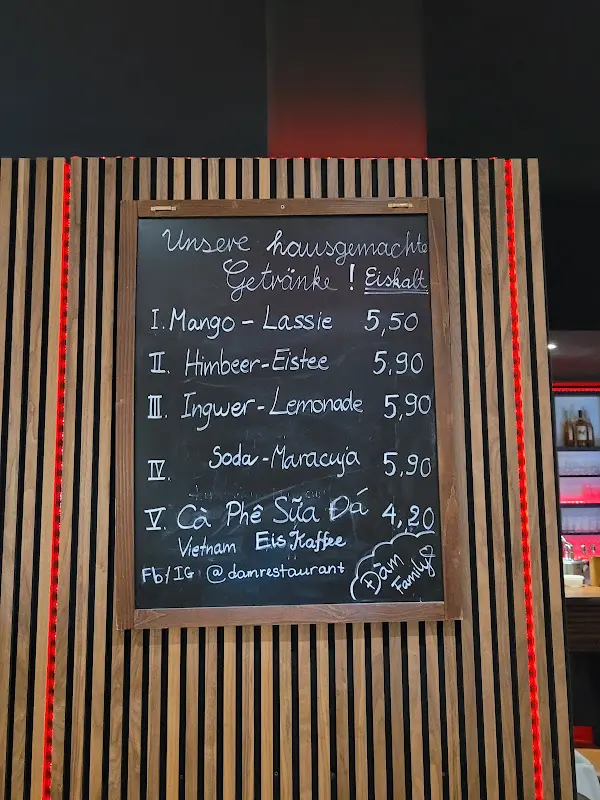 Unsere hausgemachte
Getränke ! Eiskalt
I. Mango - Lassie 5,50
II. Himbeer-Eistee 5,90
III. Ingwer-Lemonade 5,90
IV. Soda-Maracuja 5,90
V. Cà Phê Sữa Đá 4,20
Vietnam Eis Kaffee
Fb/IG @damrestaurant
Đàm
Family